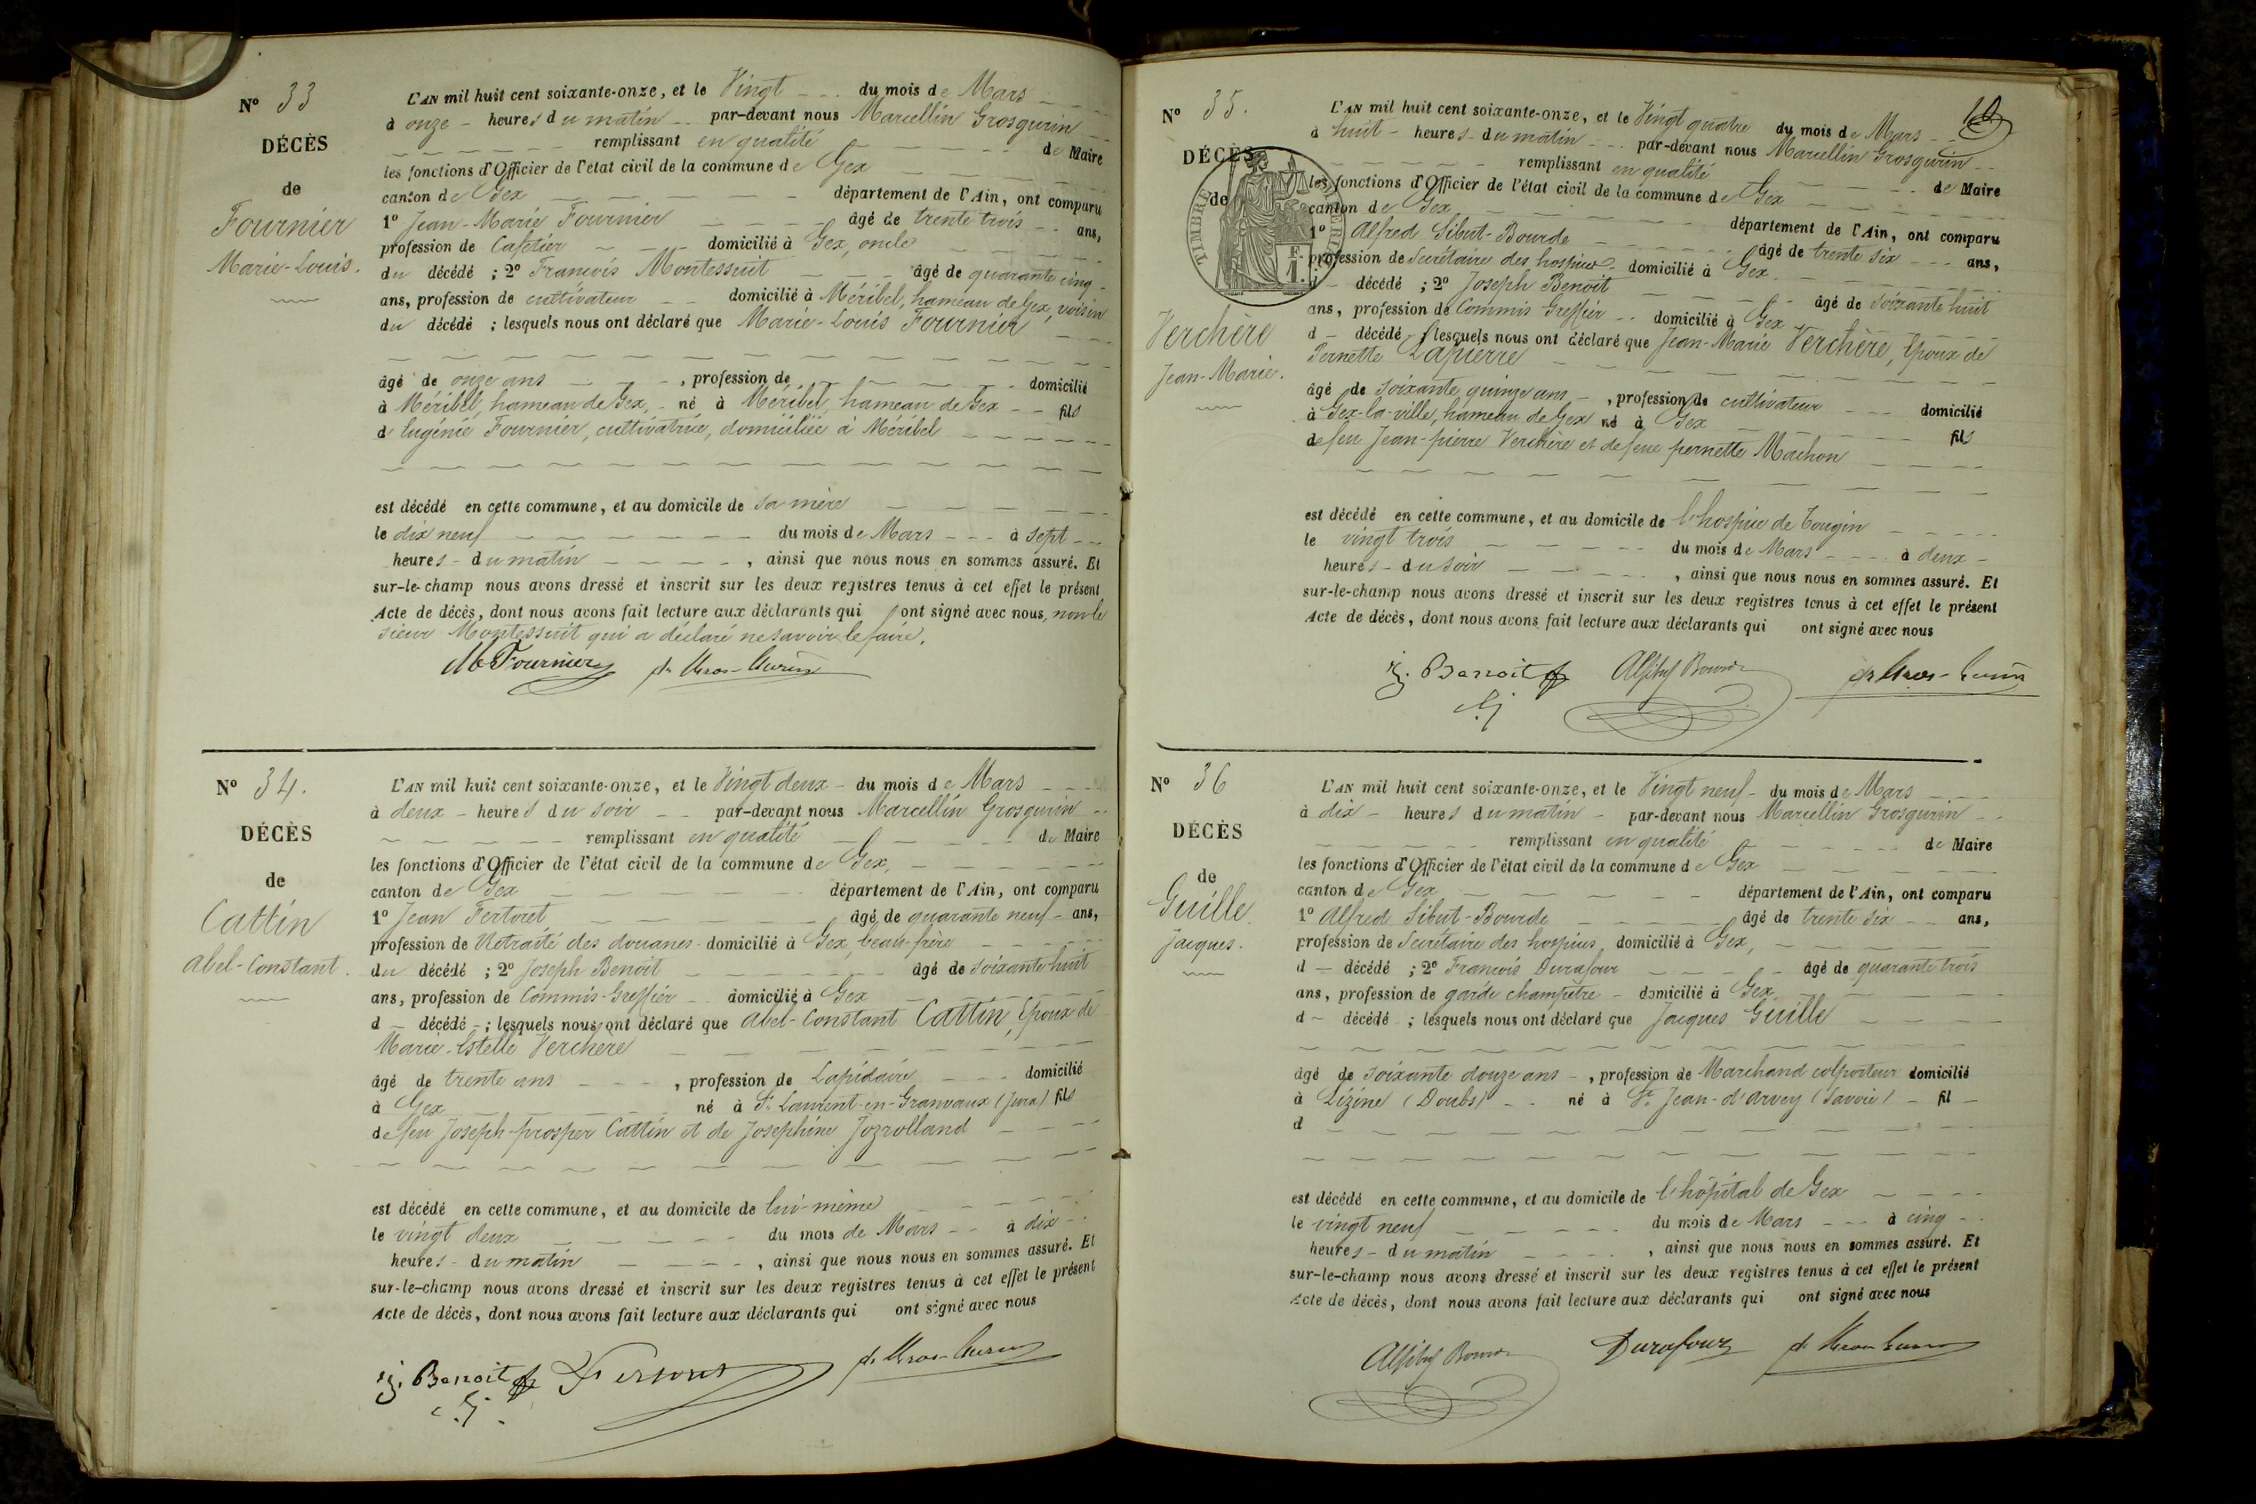 N° 33
DÉCÈS
de
Fournier
Marie-Louis.
L'AN mil huit cent soixante-onze, et le Vingt du mois de Mars
à onze heures du matin par-devant nous Marcellin Grosgurin
remplissant en qualité de Maire
les fonctions d'Officier de l'état civil de la commune de Gex
canton de Gex département de l'Ain, ont comparu
1° Jean-Marie Fournier âgé de trente trois ans,
profession de Cafetier domicilié à Gex, oncle
du décédé ; 2° François Montessuit âgé de quarante cinq
ans, profession de cultivateur domicilié à Méribel, hameau de Gex, voisin
du décédé ; lesquels nous ont déclaré que Marie-Louis Fournier
âgé de onze ans , profession de domicilié
à Méribel, hameau de Gex, né à Méribel, hameau de Gex fils
d'Eugénie Fournier, cultivatrice, domiciliée à Méribel
est décédé en cette commune, et au domicile de sa mère
le dix neuf du mois de Mars à sept
heures du matin , ainsi que nous nous en sommes assuré. Et
sur-le-champ nous avons dressé et inscrit sur les deux registres tenus à cet effet le présent
Acte de décès, dont nous avons fait lecture aux déclarants qui ont signé avec nous, non le
sieur Montessuit qui a déclaré ne savoir le faire.
M Fournier
N° 34.
DÉCÈS
de
Cattin
Abel-Constant.
L'AN mil huit cent soixante-onze, et le Vingt deux du mois de Mars
à deux heures du soir par-devant nous Marcellin Grosgurin
remplissant en qualité de Maire
les fonctions d'Officier de l'état civil de la commune de Gex,
canton de Gex département de l'Ain, ont comparu
1° Jean Fertoret âgé de quarante neuf ans,
profession de Retraité des douanes domicilié à Gex, beau-frère
du décédé ; 2° Joseph Benoit âgé de soixante huit
ans, profession de Commis-Greffier domicilié à Gex
d décédé ; lesquels nous ont déclaré que Abel-Constant Cattin, Epoux de
Marie-Estelle Verchère
âgé de trente ans , profession de Lapidaire domicilié
à Gex né à St Laurent-en-Granvaux (Jura) fils
de feu Joseph-prosper Cattin et de Josephine Jozrolland
est décédé en cette commune, et au domicile de lui-même
le vingt deux du mois de Mars à dix
heures du matin , ainsi que nous nous en sommes assuré. Et
sur-le-champ nous avons dressé et inscrit sur les deux registres tenus à cet effet le présent
Acte de décès, dont nous avons fait lecture aux déclarants qui ont signé avec nous
Benoit
N° 35.
DÉCÈS
de
Verchère
Jean-Marie.
TIMBRE IMPÉRIAL
F.
1.
L'AN mil huit cent soixante-onze, et le Vingt quatre du mois de Mars
à huit heures du matin par-devant nous Marcellin Grosgurin
remplissant en qualité de Maire
les fonctions d'Officier de l'état civil de la commune de Gex
canton de Gex département de l'Ain, ont comparu
1° Alfred Sibut-Bourde âgé de trente six ans,
profession de Secrétaire des hospices domicilié à Gex
d décédé ; 2° Joseph Benoit âgé de soixante huit
ans, profession de Commis Greffier domicilié à Gex
d décédé ; lesquels nous ont déclaré que Jean-Marie Verchère, Epoux de
Pernette Lapierre
âgé de soixante quinze ans , profession de cultivateur domicilié
à Gex-la-ville, hameau de Gex né à Gex fils
de feu Jean-pierre Verchère et de feue pernette Machon
est décédé en cette commune, et au domicile de l'hospice de Tougin
le vingt trois du mois de Mars à deux
heures du soir , ainsi que nous nous en sommes assuré. Et
sur-le-champ nous avons dressé et inscrit sur les deux registres tenus à cet effet le présent
Acte de décès, dont nous avons fait lecture aux déclarants qui ont signé avec nous
Benoit
N° 36
DÉCÈS
de
Guille
Jacques.
L'AN mil huit cent soixante-onze, et le Vingt neuf du mois de Mars
à dix heures du matin par-devant nous Marcellin Grosgurin
remplissant en qualité de Maire
les fonctions d'Officier de l'état civil de la commune de Gex
canton de Gex département de l'Ain, ont comparu
1° Alfred Sibut-Bourde âgé de trente six ans,
profession de Secrétaire des hospices domicilié à Gex,
d décédé ; 2° François Durafour âgé de quarante trois
ans, profession de garde champêtre domicilié à Gex
d décédé ; lesquels nous ont déclaré que Jacques Guille
âgé de soixante douze ans , profession de Marchand colporteur domicilié
à Lizine (Doubs) né à St Jean-d'Arvey (Savoie) fil
d
est décédé en cette commune, et au domicile de l'hôpital de Gex
le vingt neuf du mois de Mars à cinq
heures du matin , ainsi que nous nous en sommes assuré. Et
sur-le-champ nous avons dressé et inscrit sur les deux registres tenus à cet effet le présent
Acte de décès, dont nous avons fait lecture aux déclarants qui ont signé avec nous
Durafour